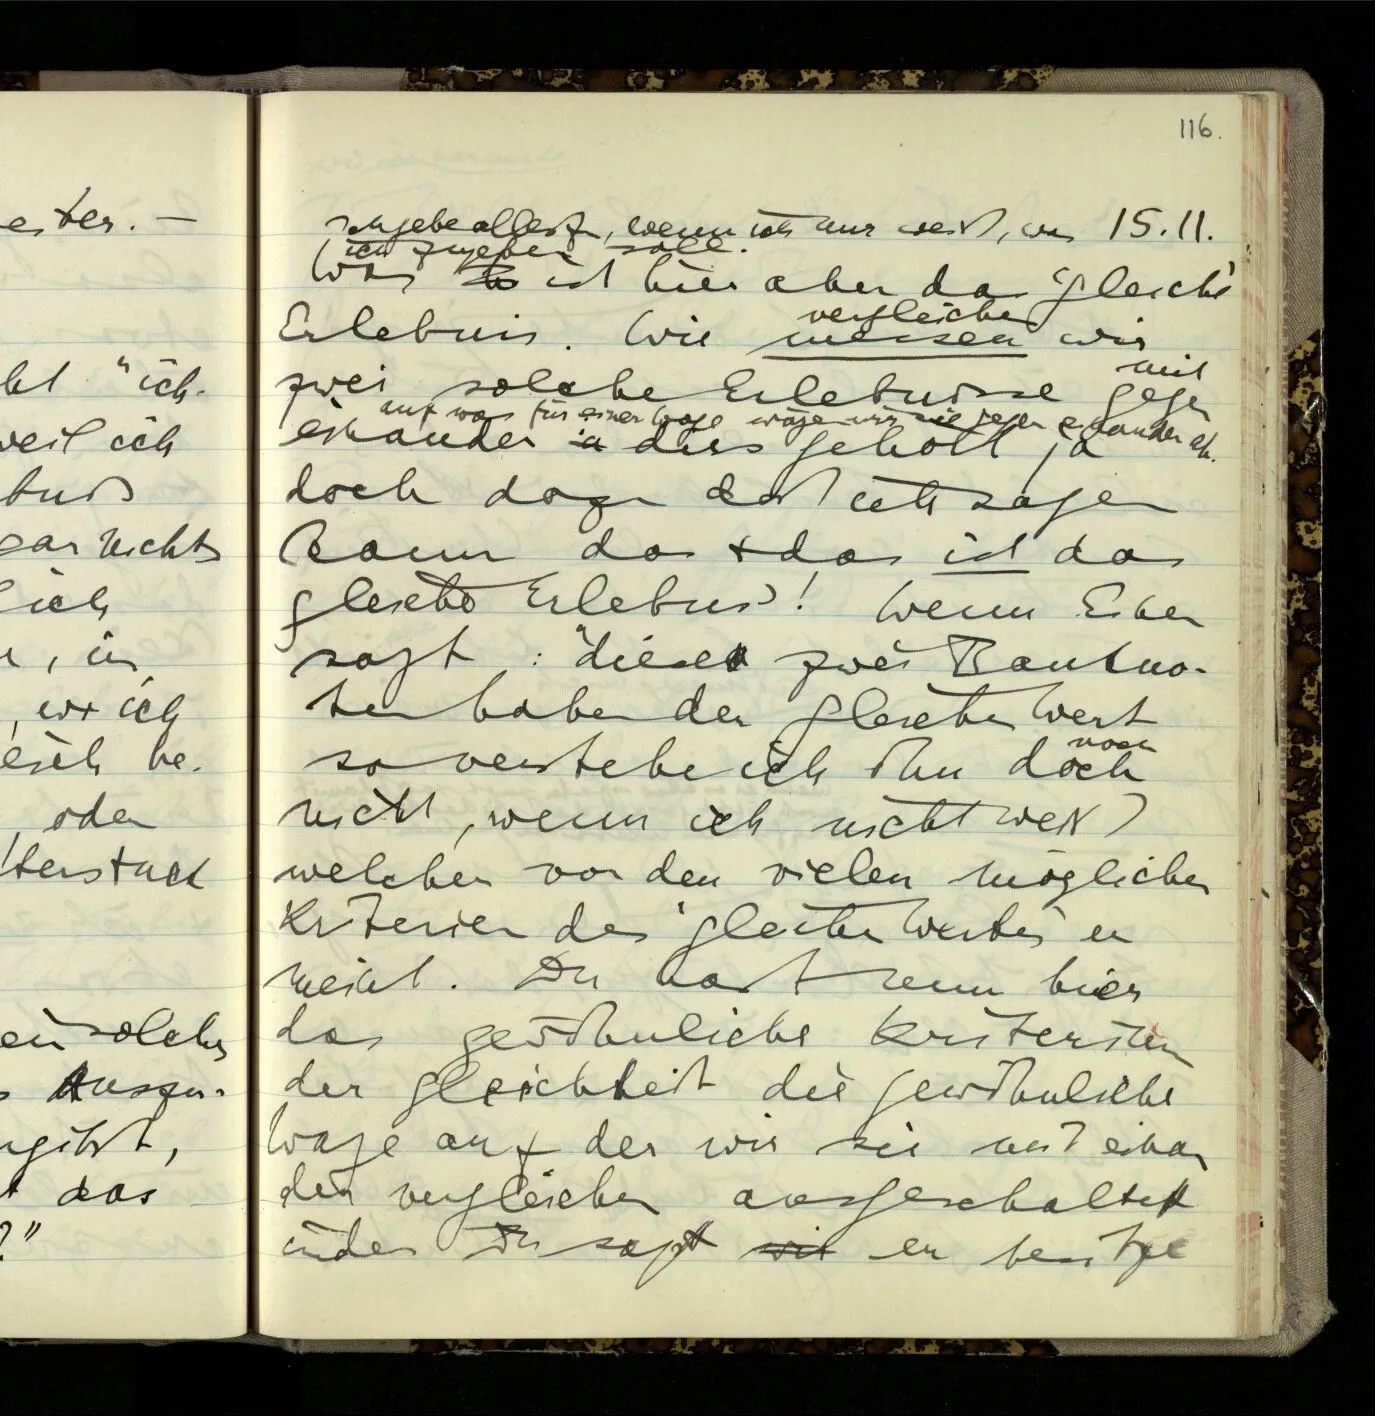 116.
ester. —
"ich
weil ich
gar nichts
ich
, wo ich
, oder
ein solches
das
?"
ich gebe alles zu, wenn ich nur weiß, was 15.11.
ich zugeben soll.
Was ist hier aber das 'gleiche'
vergleichen
Erlebnis. Wie messen wir
mit
zwei solche Erlebnisse gegen
auf was für einer Wage wäge wir sie gegen einander ab.
einander dies gehört ja
doch dazu daß ich sagen
kann das + das ist das
gleiche Erlebnis! Wenn Einer
sagt: "diese zwei Bankno-
ten haben den gleichen Wert
noch
so verstehe ich ihn doch
nicht, wenn ich nicht weiß
welches von den vielen möglichen
Kriterien des 'gleichen Wertes' er
meint. Du hast nun hier
das gewöhnliche Kriterium
der Gleichheit die gewöhnliche
Wage auf der wir sie mit einan
der vergleichen ausgeschaltet
indem Du sagst er besitze